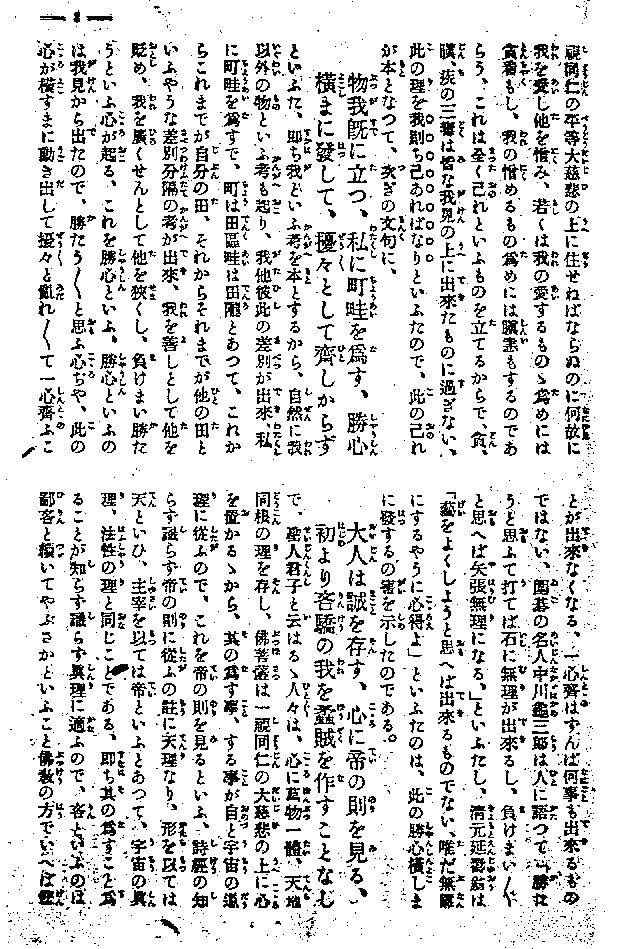 視同仁の平等大慈悲の上に住せねばならぬのに何故に
我を愛し他を憎み、若くは我の愛するものゝ爲めには
貪着もし、我の憎めるもの爲めには瞋恚もするのであ
らう、これは全く己れといふものを立てるからで、貪、
瞋、痴の三毒は皆な我見の上に出來たものに過ぎない、
此の理を我則ち己あればなりといふたので、此の己れ
が本となつて、次ぎの文句に、
物我既に立つ、私に町畦を爲す、勝心
横まに發して、擾々として齊しからず
といふた、即ち我といふ考を本とするから、自然に我
以外の物といふ考も起り、我他彼此の差別が出來、私
に町畦を爲すで、町は田區畦は田隴とあつて、これか
らこれまでが自分の田、それからそれまでが他の田と
いふやうな差別分隔の考が出來、我を善しとして他を
貶め、我を廣くせんとして他を狹くし、負けまい勝た
うといふ心が起る、これを勝心といふ、勝心といふの
は我見から出たので、勝たう〳〵と思ふ心ぢや、此の
心が横すまに動き出して擾々と亂れ〳〵て一心齊ふこ
とが出來なくなる、一心齊はずんば何事も出來るもの
ではない、圍碁の名人中川龜三郎は人に語つて「勝た
うと思ふて打てば石に無理が出來るし、負けまい〳〵
と思へば矢張無理になる」といふたし、清元延壽翁は
「藝をよくしようと思へば出來るものでない、唯だ無難
にするやうに心得よ」といふたのは、此の勝心横しま
に發するの害を示したのである。
大人は誠を存す、心に帝の則を見る、
初より吝驕の我を蟊賊を作すことなむ
で、聖人君子と云はるゝ人々は、心に萬物一體、天地
同根の理を存し、佛菩薩は一視同仁の大慈悲の上に心
を置かるゝから、其の爲す事、する事が自と宇宙の道
理に從ふので、これを帝の則を見るといふ、詩經の知
らず識らず帝の則に從ふの註に天理なり、形を以ては
天といひ、主宰を以ては帝といふとあつて、宇宙の眞
理、法性の理と同じことである、即ち其の爲すこと爲
ることが知らず識らず眞理に適ふので、吝といふのは
鄙吝と續いてやぶさかといふこと佛敎の方でいへば慳